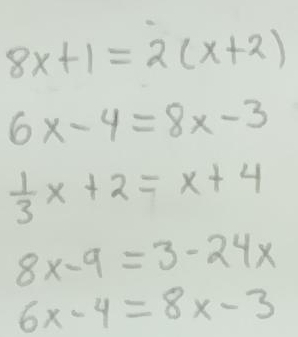 8x+1=2(x+2)
6x-4=8x-3
1/3 x +2= x+4
8x-9=3-24x
6x-4=8x-3